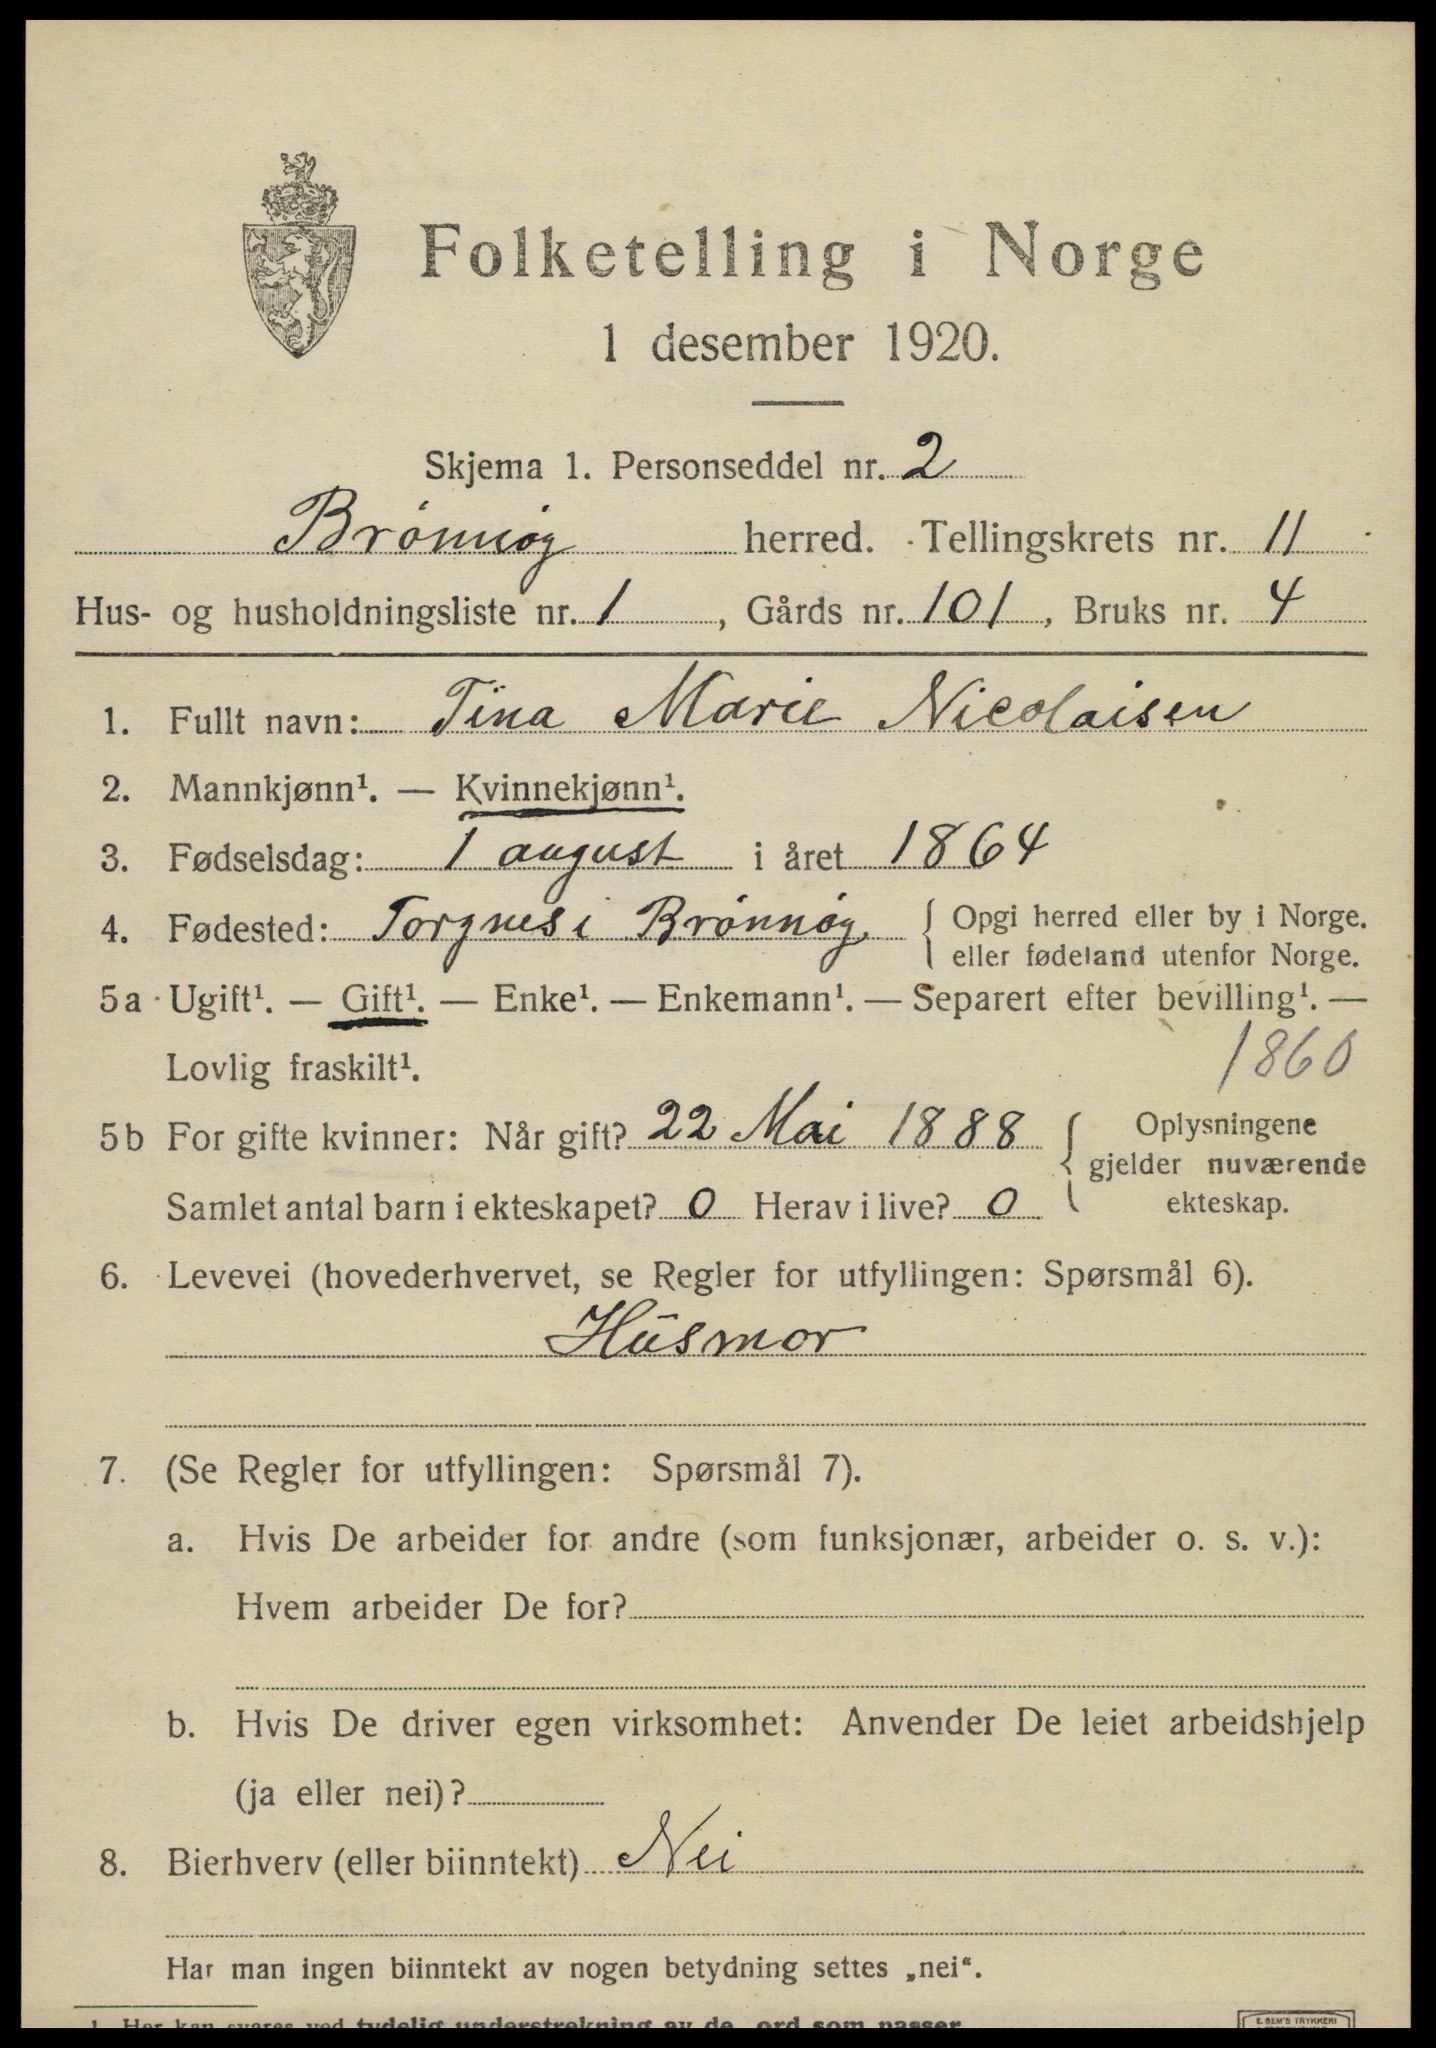 Folketelling i Norge
1 desember 1920.
Skjema 1. Personseddel nr. 2
Brønnøy herred. Tellingskrets nr. 11
Hus- og husholdningsliste nr. 1, Gårds nr. 101, Bruks nr. 4
1. Fullt navn: Tina Marie Nicolaisen
2. Mannkjønn¹. — Kvinnekjønn¹.
3. Fødselsdag: 1 august i året 1864
4. Fødested: Torgnes i Brønnøy { Opgi herred eller by i Norge.
eller fødeland utenfor Norge.
5a Ugift¹. — Gift¹. — Enke¹. — Enkemann¹. — Separert efter bevilling¹. —
Lovlig fraskilt¹. 1860
5b For gifte kvinner: Når gift? 22 Mai 1888 { Oplysningene
gjelder nuværende
Samlet antal barn i ekteskapet? 0 Herav i live? 0 ekteskap.
6. Levevei (hovederhvervet, se Regler for utfyllingen: Spørsmål 6).
Husmor
7. (Se Regler for utfyllingen: Spørsmål 7).
a. Hvis De arbeider for andre (som funksjonær, arbeider o. s. v.):
Hvem arbeider De for?
b. Hvis De driver egen virksomhet: Anvender De leiet arbeidshjelp
(ja eller nei)?
8. Bierhverv (eller biinntekt) Nei
Har man ingen biinntekt av nogen betydning settes „nei“.
1 Her kan svares ved tydelig understrekning av de ord som passer
E. SEM'S TRYKKERI